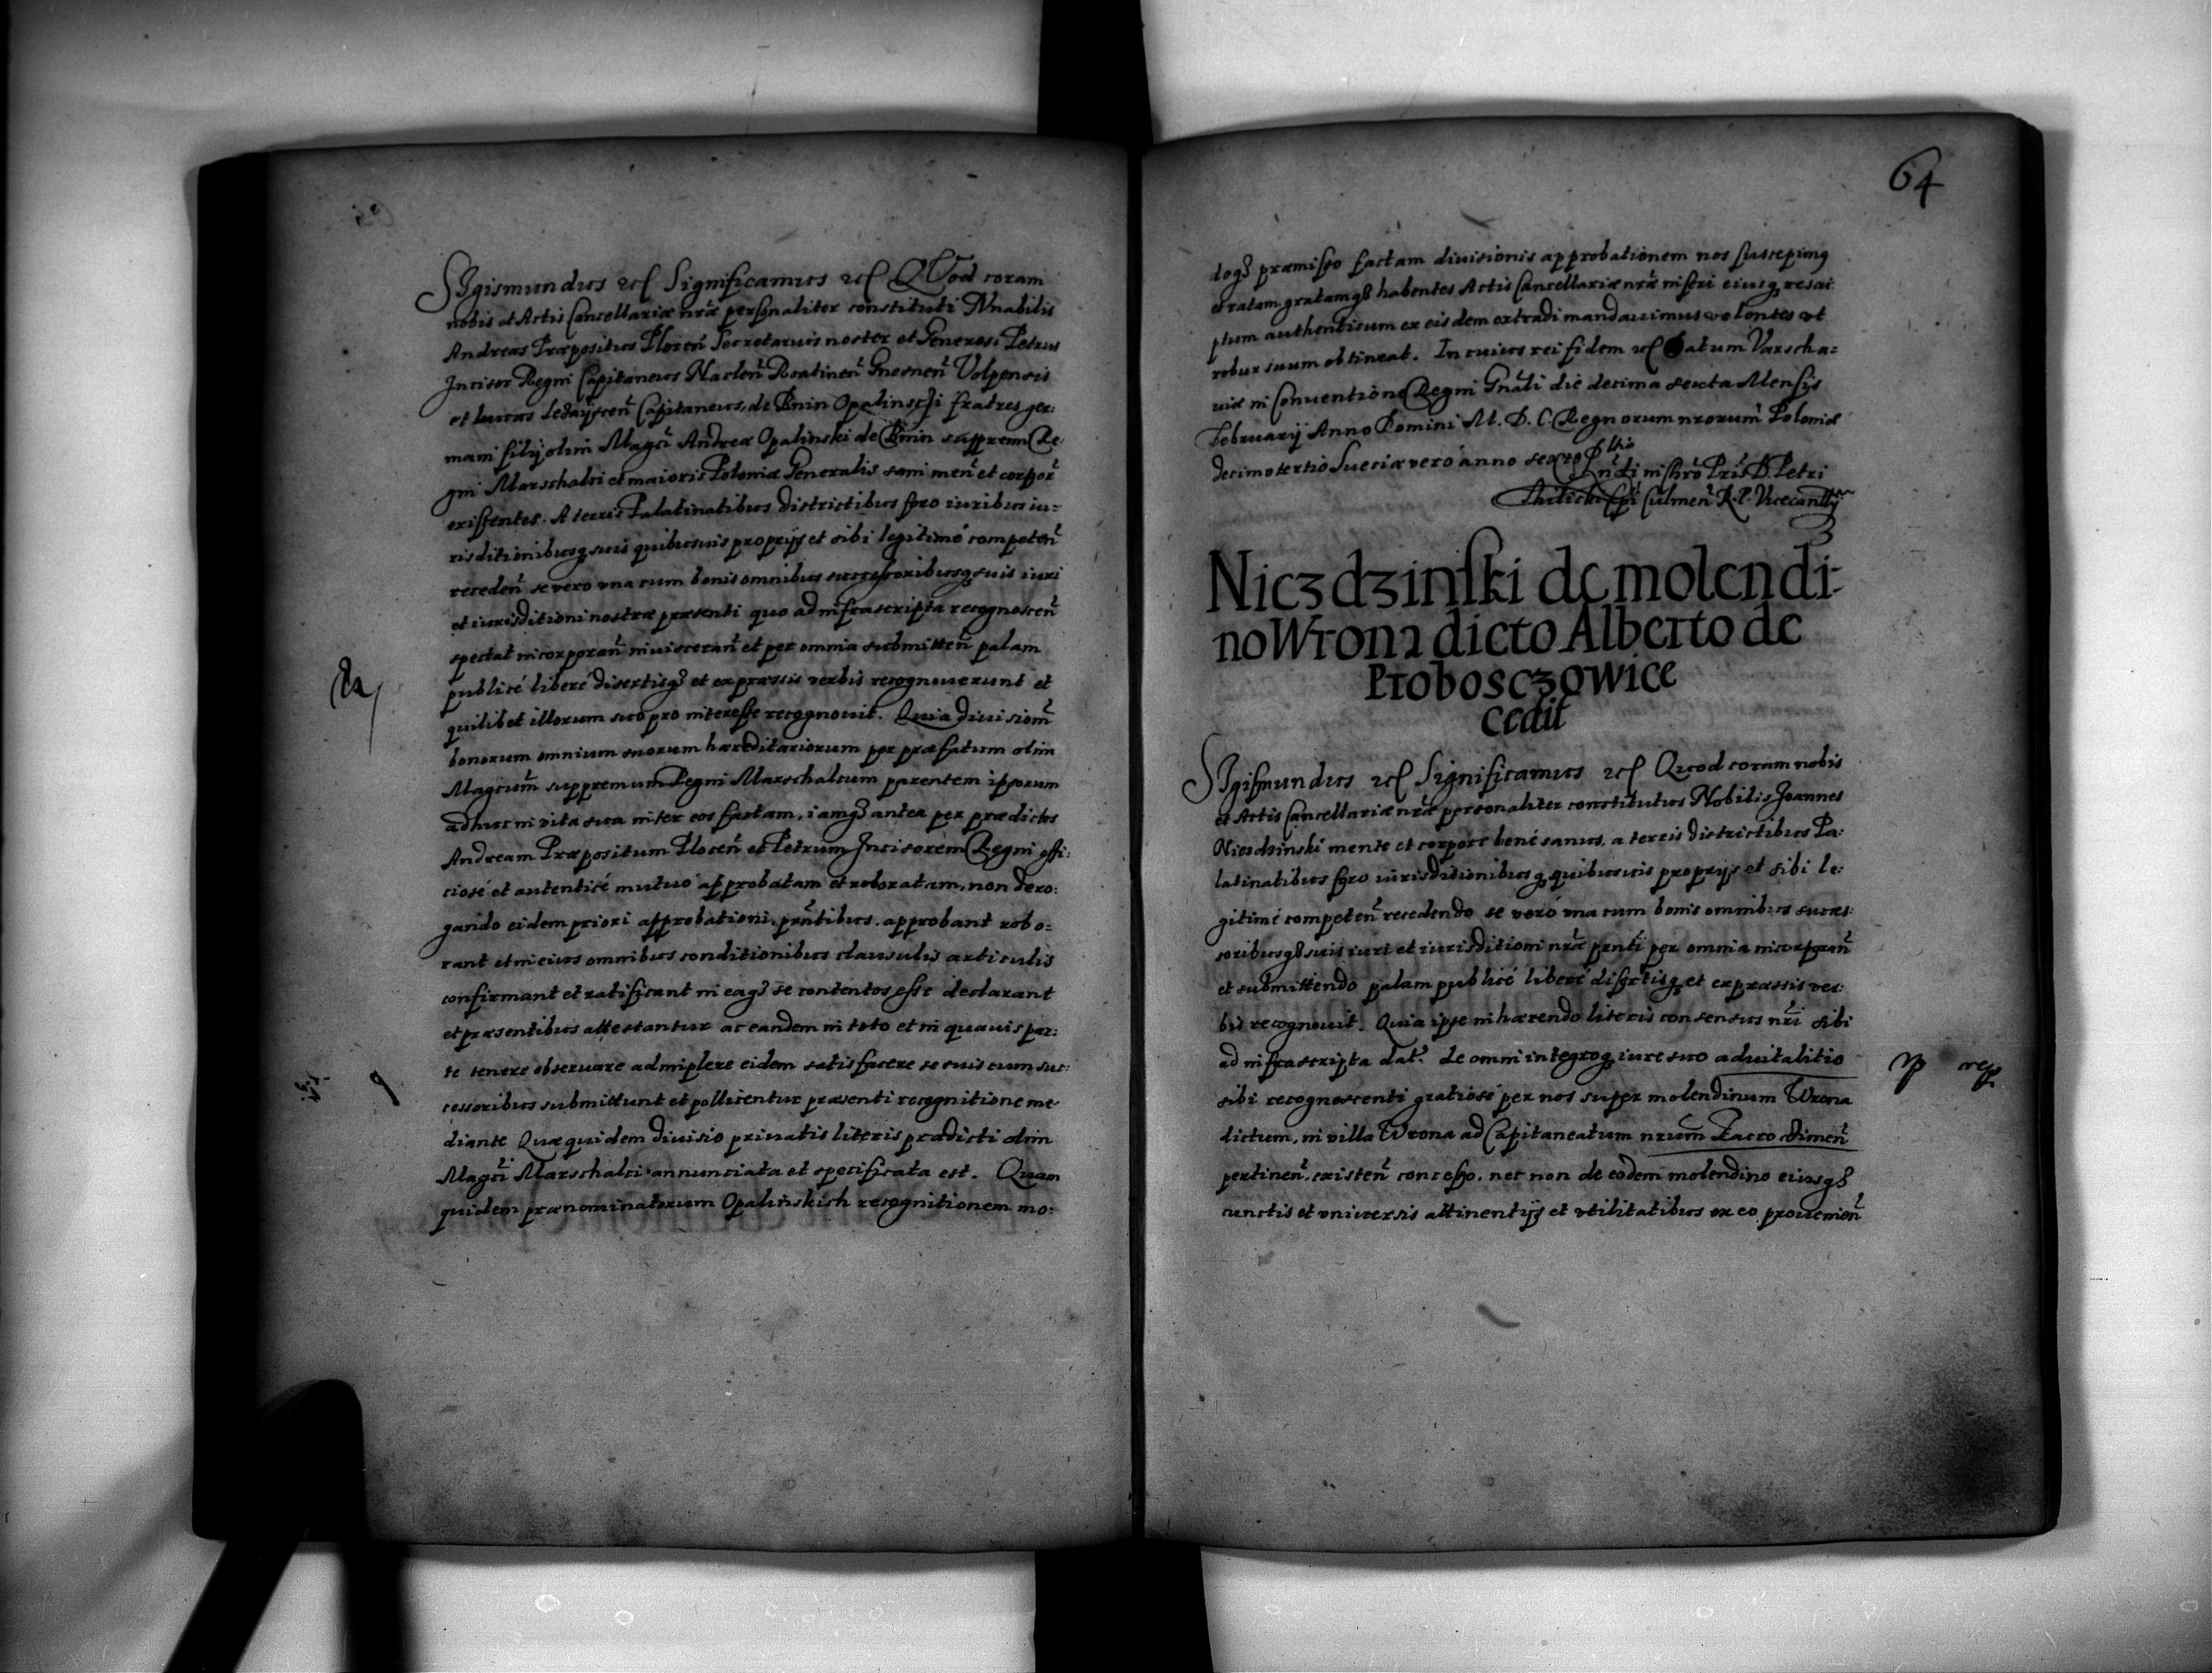 SIgismundus etc Significamus etc QVod coram
nobis et Actis Cancellariæ nr̃æ personaliter constituti Vnabilis
Andreas Præpositus Plocen̄ Secretarius noster et Generosi Petrus
Incisor Regni Capitaneus Naclen̄ Roatinen̄ Gnesnen̄ Volpensis
et Lucas Capitaneus, de Bnin Opalinscÿi fratres ger:
mani filij olim Magci Andreæ Opalinski de Bnin suppremi Re:
gni Marschalci et maioris Poloniæ Generalis sani men̄ et corpor̄
existentes. A terris Palatinatibus districtibus foro iuribus iu=
risditionibusq suis quibusuis proprijs et sibi legitimé competen̄
receden̄ se vero vna cum bonis omnibus successoribusq suis iuri
et iurisditioni nostræ præsenti quo ad infrascripta recognoscen̄
spectat incorporan̄ inuisceran̄ et per omnia submitten̄ palam
publicé liberé disertisq et expræssis verbis recognouerunt et
quilibet illorum suo pro interesse recognouit. Quia diuisiom̄
bonorum omnium suorum hæreditariorum per præfatum olim
Magcum̄ suppremum Regni Marschalcum parentem ipsorum
adhuc in vita sua inter eos factam, iamq antea per prædictos
Andream Præpositum Plocen̄ et Petrum Incisorem Regni offi:
ciosé et autenticé mutuo approbatam et roboratam, non dero:
gando eidem priori approbationi, prn̄tibus approbant robo:
rant et in eius omnibus conditionibus clausulis articulis
confirmant et ratificant in eaq se contentos esse declarant
et præsentibus attestantur ac eandem in toto et in quauis par:
te tenere obseruare adimplere eidem satisfacere se suis cum suc:
cessoribus submittunt et pollicentur præsenti recognitione me=
diante Quæ quidem diuisio priuatis literis prædicti olim
Magci Marschalci annunciata et specificata est. Quam
quidem prænominatorum Opalinskich recognitionem mo:
64
doq præmisso factam diuisionis approbationem nos suscepimus
et ratam gratamq habentes Actis Cancellariæ nr̃æ inseri eiusq rescri
ptum authenticum ex eisdem extradi mandauimus volentes vt
robur suum obtineat. In cuius rei fidem etc Datum Varscha=
uiæ in Conuentione Regni Gnāli die decima sexta Mensis
Februarij Anno Domini M. D. C. Regnorum nrorum̄ Poloniæ
decimotertio Sueciæ veró anno sexto
Petri
Culmen̄ R. P. Vicecancllrij
Niezdzinski de molendi-
no Wrona dicto Alberto de
Proboszczowice
cedit
SIgismundus etc Significamus etc Quod coram nobis
et Actis Cancellariæ nr̃æ personaliter constitutus Nobilis Joannes
Niezdzinski mente et corpore bené sanus, a terris districtibus Pa:
latinatibus foro iurisditionibusq quibusuis proprijs et sibi le:
gitimé competen̄ recedendo se veró vna cum bonis omnibus succes:
soribusq suis iuri et iurisditioni nr̃æ prn̄ti per omnia incorporan̄
et submittendo palam publicé liberé disertisq et expræssis ver:
bis recognouit. Quia ipse inhærendo literis consensus nr̄i sibi
ad infrascripta dat. de omni integroq iure suo aduitalitio
sibi recognoscenti gratiosé per nos super molendinum Wrona
dictum, in villa Wrona ad Capitaneatum nrum̄ Zacrocimen̄
pertinen̄, existen̄ concesso, nec non de eodem molendino eiusq
cunctis et vniuersis attinentijs et vtilitatibus ex eo prouenien̄